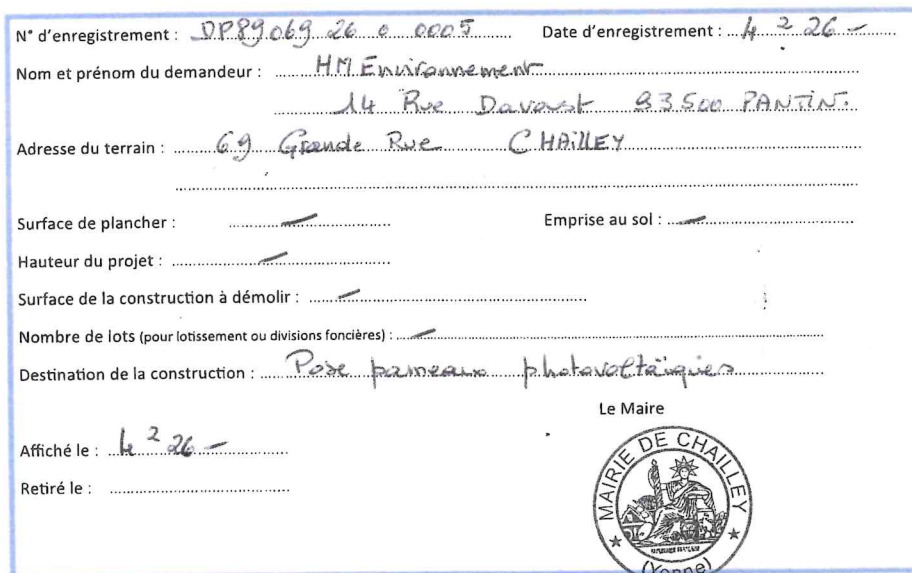 N° d'enregistrement : DP89069 26 0 0005 Date d'enregistrement : 4 2 26 -
Nom et prénom du demandeur : HM Environnement
14 Rue Davoust 93500 PANTIN.
Adresse du terrain : 69 Grande Rue CHAILLEY
Surface de plancher : — Emprise au sol : —
Hauteur du projet : —
Surface de la construction à démolir : —
Nombre de lots (pour lotissement ou divisions foncières) : —
Destination de la construction : Pose panneaux photovoltaïques
Le Maire
Affiché le : 4 2 26 -
Retiré le :
MAIRIE DE CHAILLEY
RÉPUBLIQUE FRANÇAISE
(Yonne)